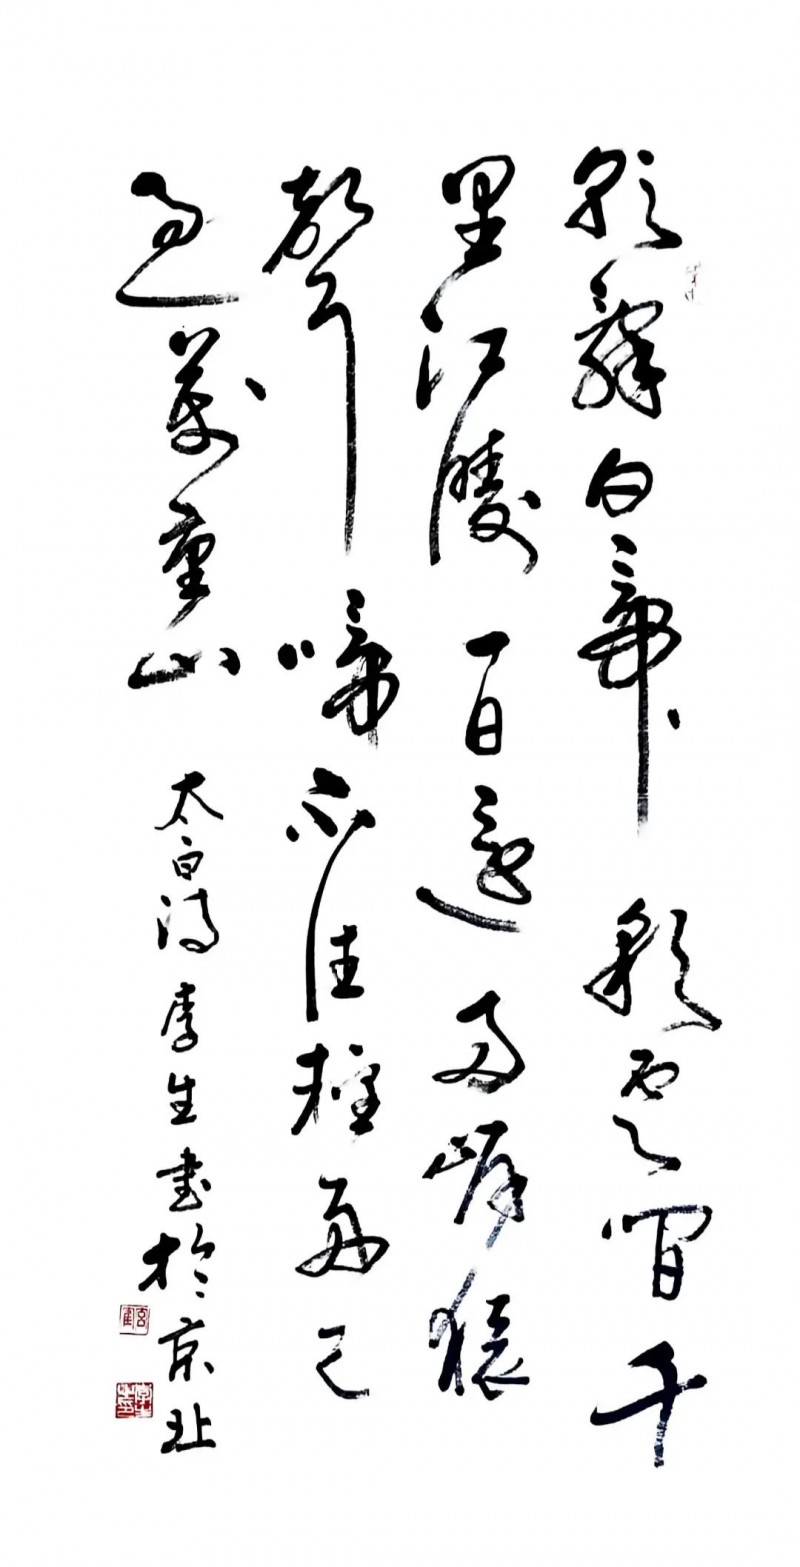 朝辭白帝彩雲間千
里江陵一日還兩岸猿
聲啼不住輕舟已
過萬重山 太白詩 李生書於京北